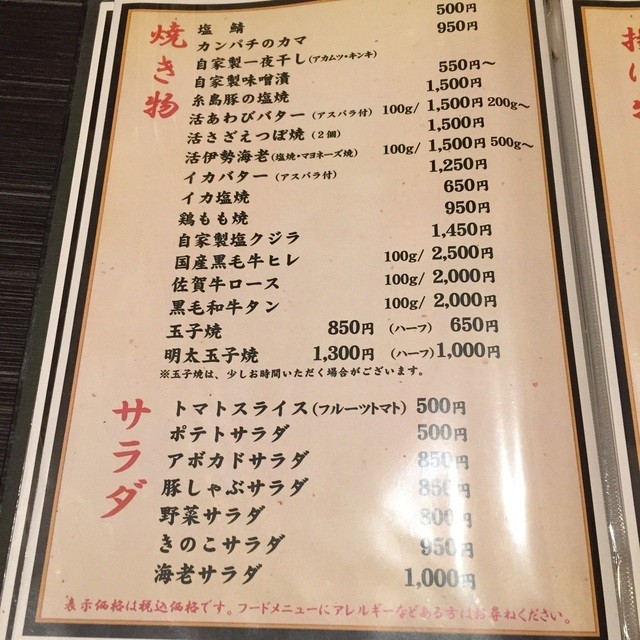 焼き物
塩 鯖 500円
カンパチのカマ 950円
自家製一夜干し(アカムツ・キンキ)
自家製味噌漬 550円〜
糸島豚の塩焼 1,500円
活あわびバター (アスパラ付) 100g/ 1,500円 200g〜
活さざえつぼ焼 (2個) 1,500円
活伊勢海老(塩焼・マヨネーズ焼) 100g/ 1,500円 500g〜
イカバター (アスパラ付) 1,250円
イカ塩焼 650円
鶏もも焼 950円
自家製塩クジラ 1,450円
国産黒毛牛ヒレ 100g/ 2,500円
佐賀牛ロース 100g/ 2,000円
黒毛和牛タン 100g/ 2,000円
玉子焼 850円 (ハーフ) 650円
明太玉子焼 1,300円 (ハーフ) 1,000円
※玉子焼は、少しお時間いただく場合がございます。
サラダ
トマトスライス(フルーツトマト) 500円
ポテトサラダ 500円
アボカドサラダ 850円
豚しゃぶサラダ 850円
野菜サラダ 800円
きのこサラダ 950円
海老サラダ 1,000円
表示価格は税込価格です。フードメニューにアレルギーなどある方はお尋ねください。